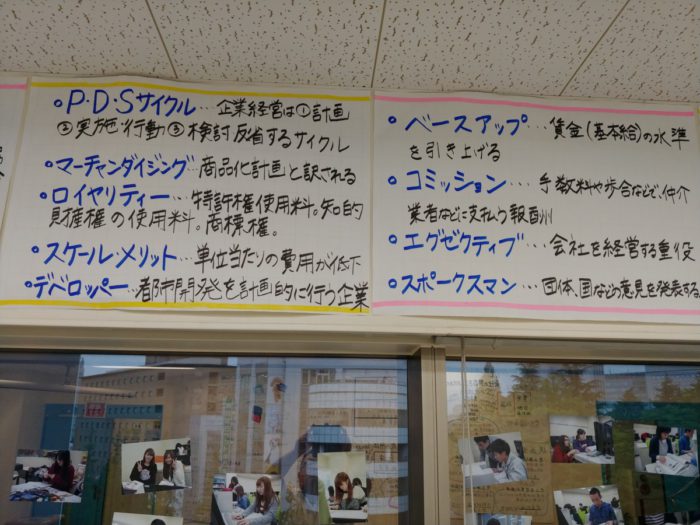 ○P・D・Sサイクル…企業経営は①計画
②実施・行動③検討反省するサイクル
○マーチャンダイジング…商品化計画と訳される
○ロイヤリティー…特許権使用料。知的
財産権の使用料。商標権。
○スケール・メリット…単位当たりの費用が低下
○デベロッパー…都市開発を計画的に行う企業
○ベースアップ…賃金(基本給)の水準
を引き上げる
○コミッション…手数料や歩合などで、仲介
業者などに支払う報酬
○エグゼクティブ…会社を経営する重役
○スポークスマン…団体、国などの意見を発表する